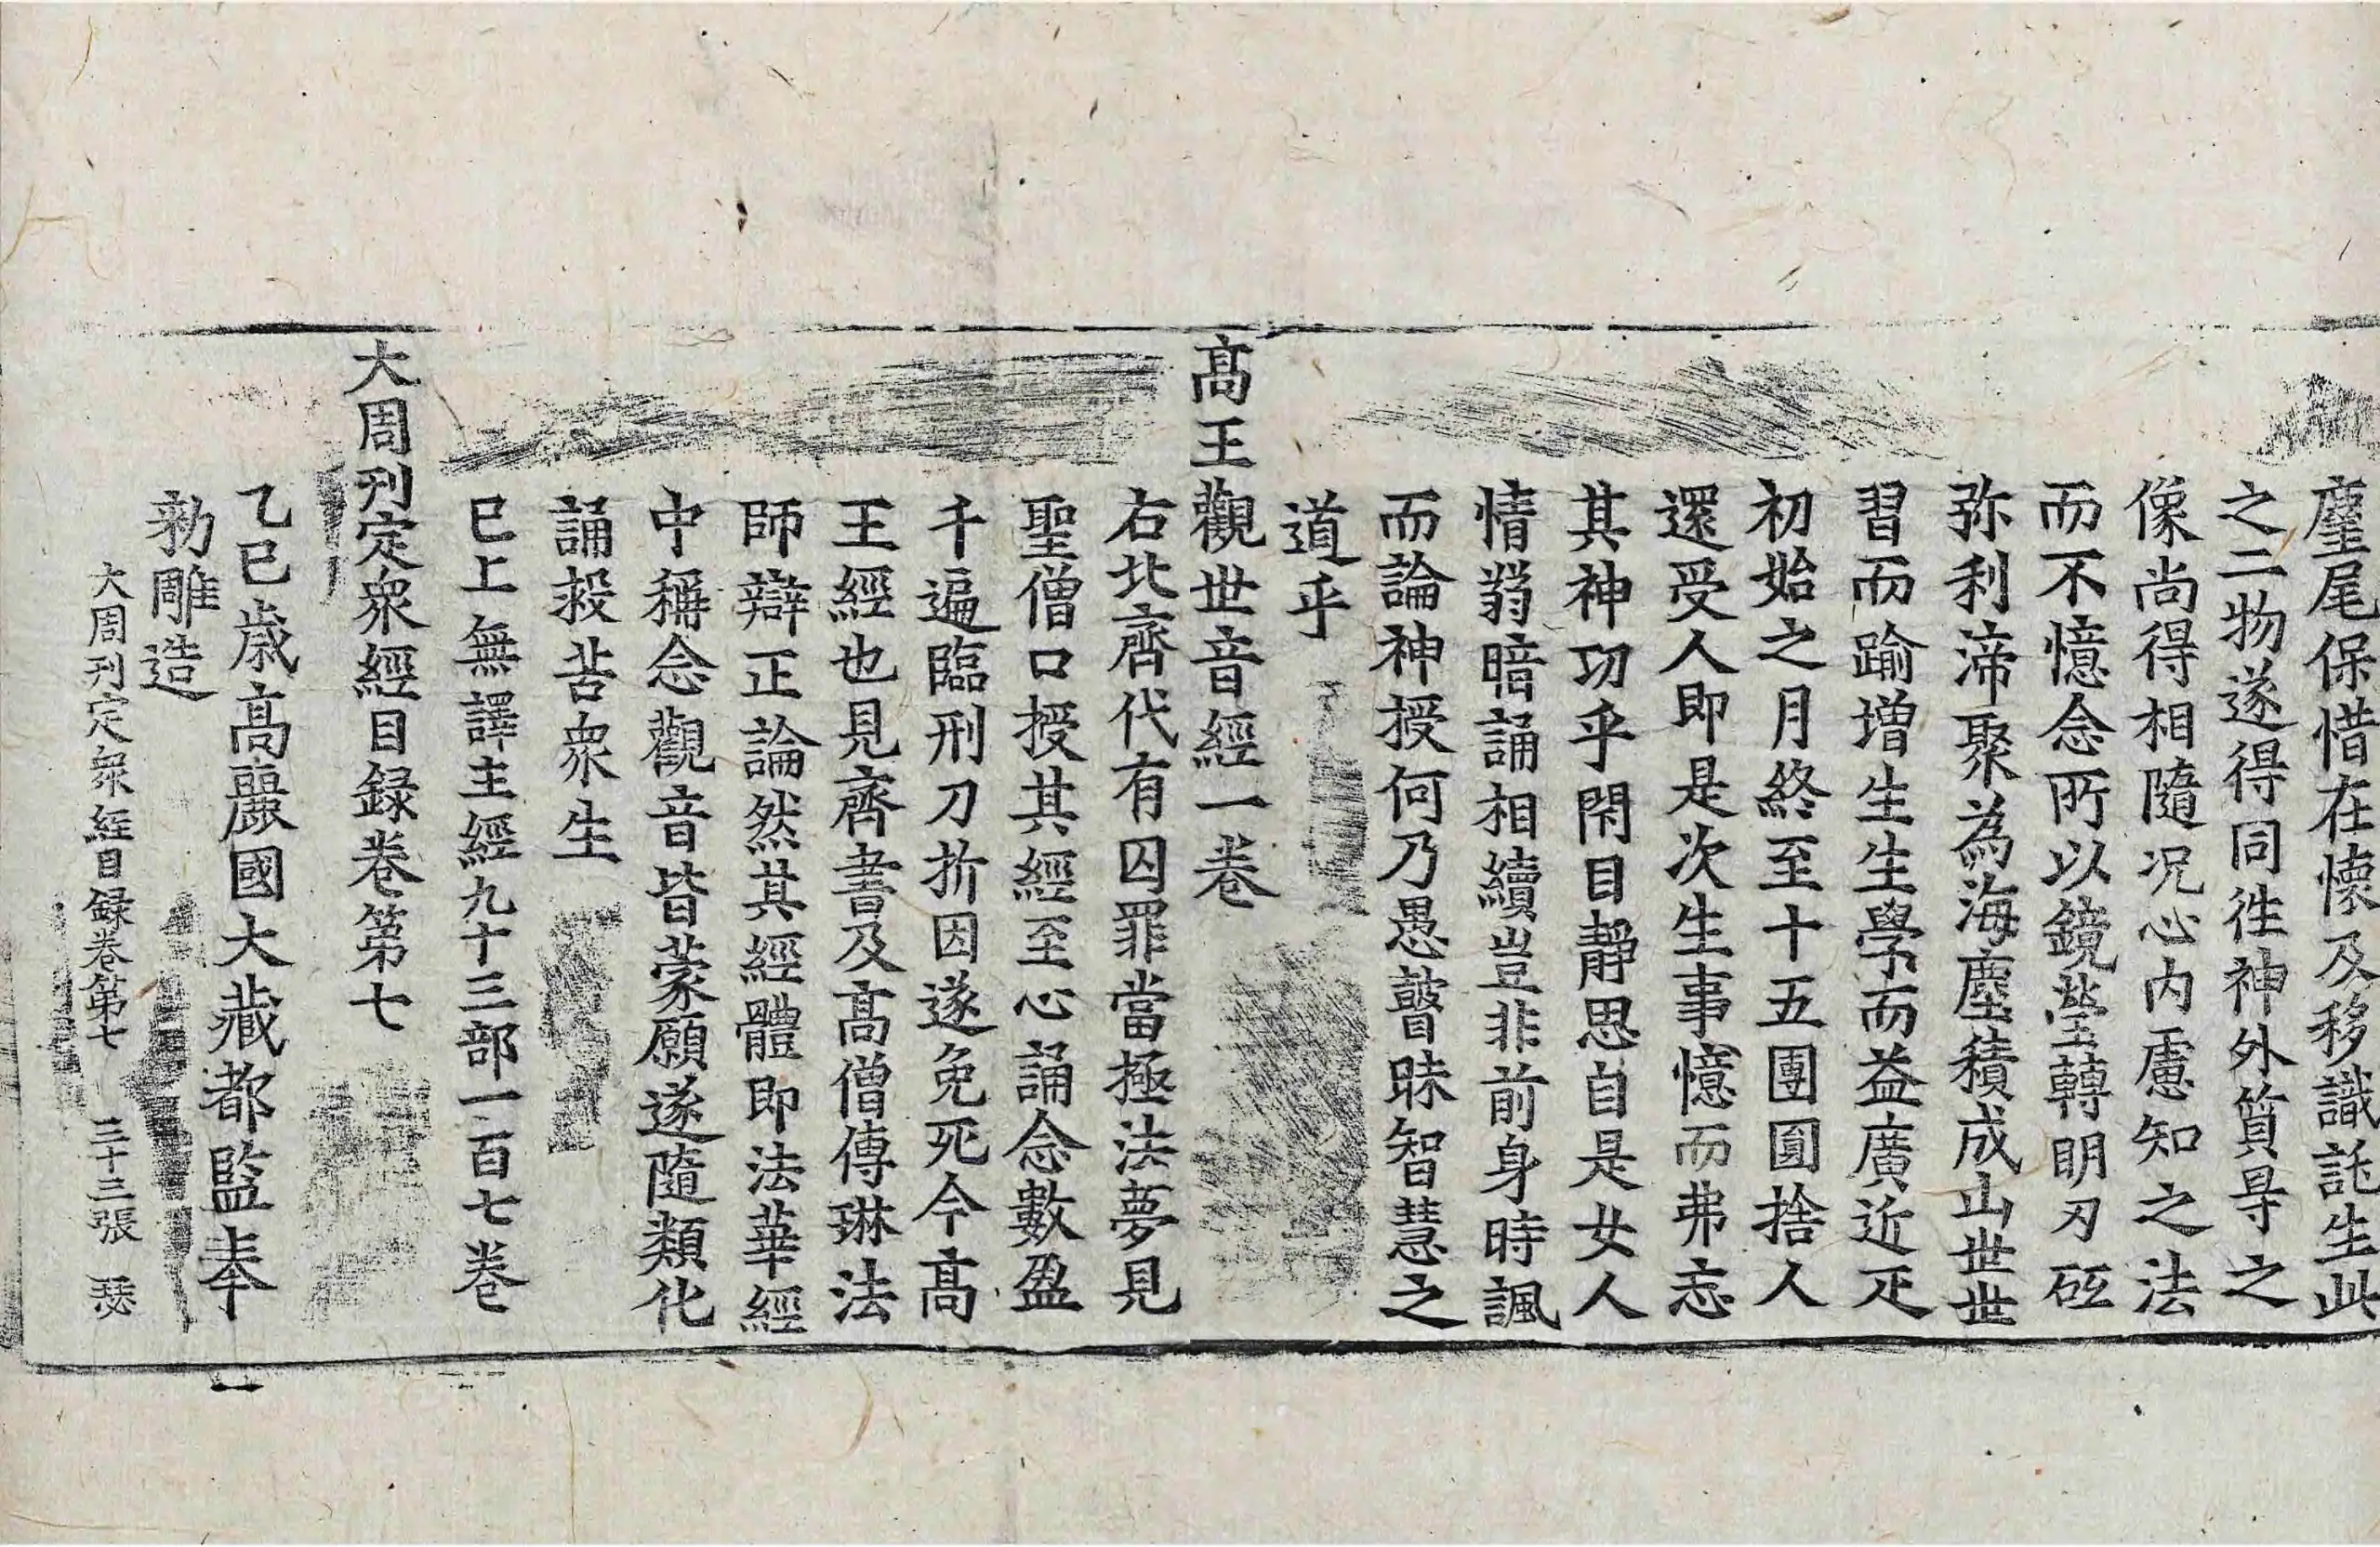 麈尾保惜在懷及移識託生此
之二物遂得同徃神外質㝵之
像尚得相隨况心內慮知之法
而不憶念所以鏡瑩轉明刃砥
弥利渧聚為海塵積成山世世
習而踰增生生學而益廣近疋
初始之月終至十五團圓捨人
還受人即是次生事憶而弗忘
其神功乎閇目靜思自是女人
情翁暗誦相續豈非前身時諷
而論神授何乃愚瞽昧智慧之
道乎
髙王觀世音經一卷
右北齊代有囚罪當極法夢見
聖僧口授其經至心誦念數盈
千遍臨刑刀折因遂免死今髙
王經也見齊書及髙僧傳琳法
師辯正論然其經體即法華經
中稱念觀音皆蒙願遂隨類化
誦救苦衆生
已上無譯主經九十三部一百七卷
大周刊定衆經目録卷第七
乙巳歲髙麗國大藏都監奉
勑雕造
大周刊定衆經目録卷第七 三十三張 瑟